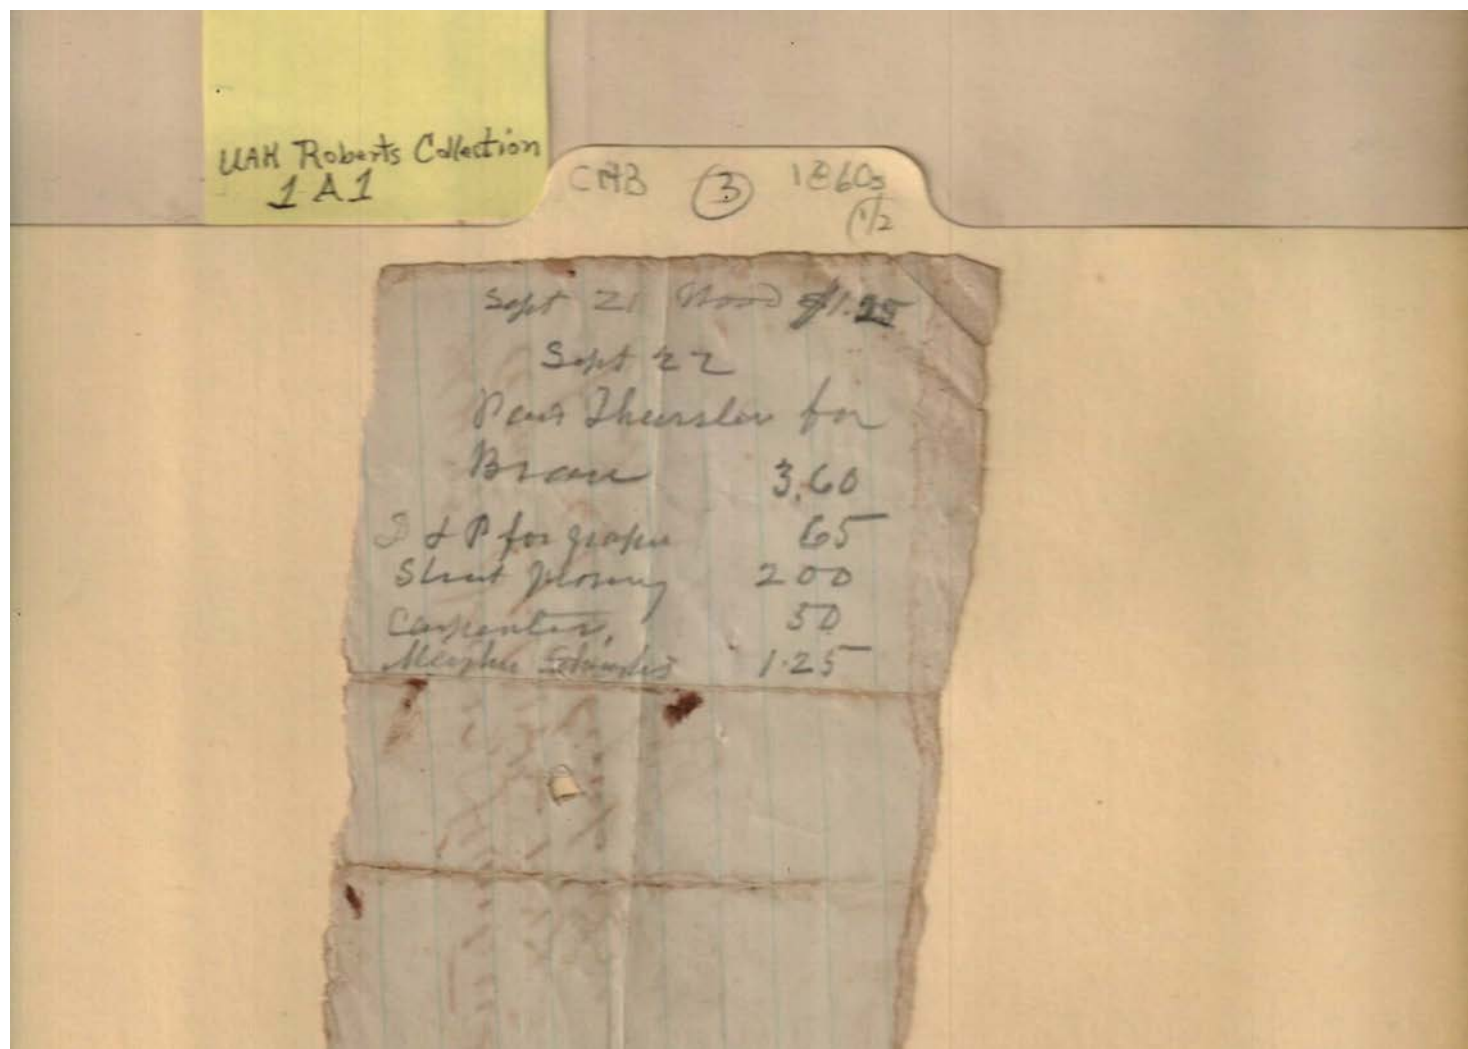 UAH Roberts Collection
1 A 1
CAB 3 1860s
1/2
Sept 21 Wood $1.25
Sept 22
Paid Thurslow for
Bran 3.60
D & P for grapes 65
Street 200
Carpenter, 50
1.25